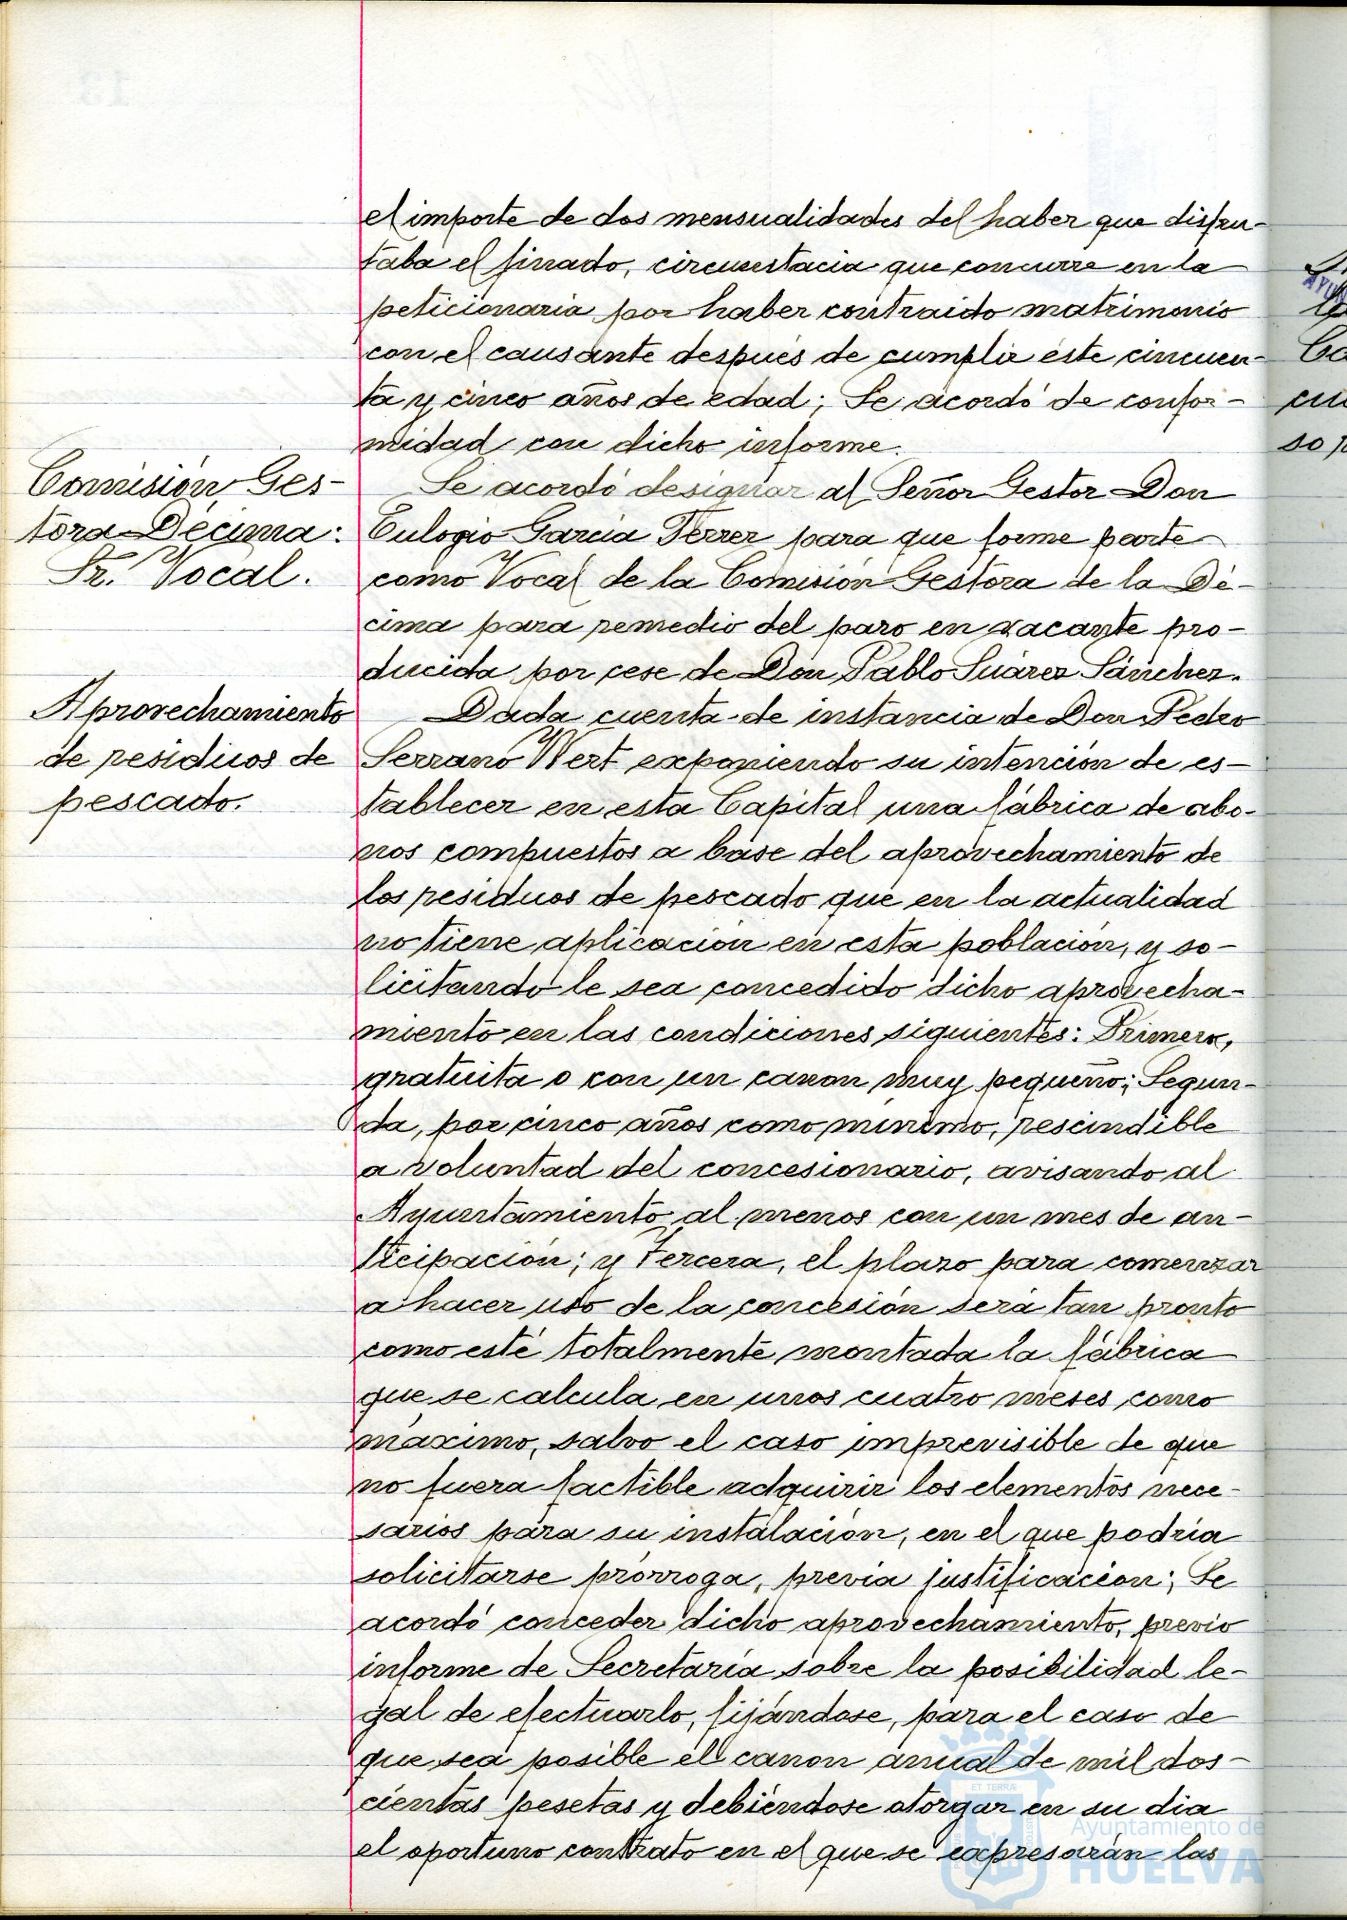 el importe de dos mensualidades del haber que disfru-
taba el finado, circunstacia que concurre en la
peticionaria por haber contraido matrimonio
con el causante después de cumplir éste cincuen-
ta y cinco años de edad; Se acordó de confor-
midad con dicho informe.
Comisión Ges-
tora Décima:
Sr. Vocal.
Se acordó designar al Señor Gestor Don
Eulogio García Ferrer para que forme parte
como Vocal de la Comisión Gestora de la Dé-
cima para remedio del paro en vacante pro-
ducida por cese de Don Pablo Suárez Sánchez.
Aprovechamiento
de residuos de
pescado.
Dada cuenta de instancia de Don Pedro
Serrano Wert exponiendo su intención de es-
tablecer en esta Capital una fábrica de abo-
nos compuestos a base del aprovechamiento de
los residuos de pescado que en la actualidad
no tiene aplicación en esta población, y so-
licitando le sea concedido dicho aprovecha-
miento en las condiciones siguientes: Primera,
gratuita o con un canon muy pequeño; Segun-
da, por cinco años como mínimo, rescindible
a voluntad del concesionario, avisando al
Ayuntamiento al menos con un mes de an-
ticipación; y Tercera, el plazo para comenzar
a hacer uso de la concesión será tan pronto
como esté totalmente montada la fábrica
que se calcula en unos cuatro meses como
máximo, salvo el caso imprevisible de que
no fuera factible adquirir los elementos nece-
sarios para su instalación, en el que podría
solicitarse prórroga, previa justificación; Se
acordó conceder dicho aprovechamiento, previo
informe de Secretaría sobre la posibilidad le-
gal de efectuarlo, fijándose, para el caso de
que sea posible el canon anual de mil dos-
cientas pesetas y debiéndose otorgar en su dia
el oportuno contrato en el que se expresarán las
ET TERRÆ
Ayuntamiento de
HUELVA